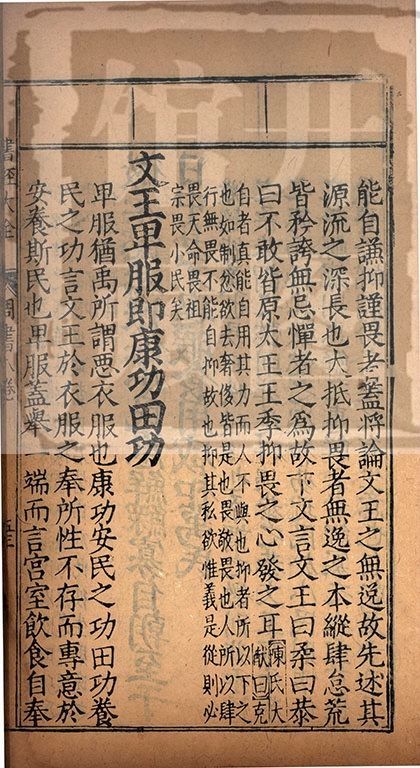 能自謙抑謹畏者蓋將論文王之無逸故先述其
源流之深長也大抵抑畏者無逸之本縱肆怠荒
皆矜誇無忌憚者之為故下文言文王曰柔曰恭
曰不敢皆原太王王季抑畏之心發之耳 陳氏大猷曰克
自者真能自用其力而人不與也抑者所以下之
也如制忿欲去奢侈皆是也畏敬畏也人所以肆
行無畏不能自抑故也抑其私欲惟義是從則必
畏天命畏祖
宗畏小民矣
文王卑服即康功田功
卑服猶禹所謂惡衣服也康功安民之功田功養
民之功言文王於衣服之奉所性不存而專意於
安養斯民也卑服蓋舉一端而言宮室飲食自奉
書經大全 周書八卷